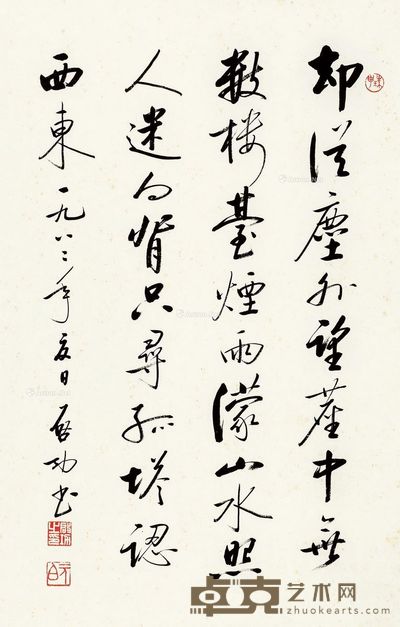 却從塵外望塵中無
數楼臺煙雨濛山水照
人迷向背只尋孤塔認
西東 一九八二年夏日 啟功書
元白
卓克艺术网
zhuokearts.com